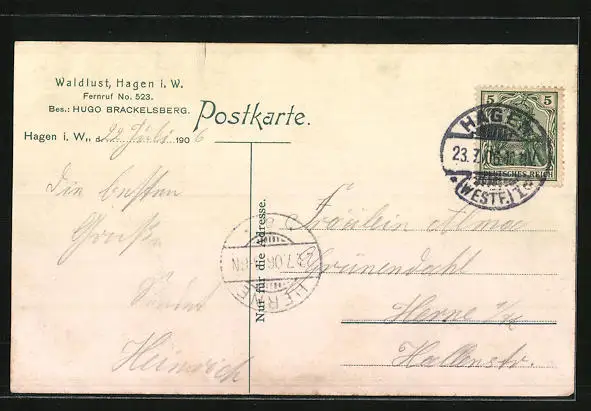 Waldlust, Hagen i. W.
Fernruf No. 523.
Bes.: HUGO BRACKELSBERG.
Postkarte.
Hagen i. W., d. 22 Juli 1906
5 5
DEUTSCHES REICH
HAGEN
23.7.06
(WESTF.)
Die besten
Grüße
sendet
Heinrich
Nur für die Adresse.
HERNE
23.7.06
Fräulein Alma
Grünendahl
Herne i/W
Hallenstr.